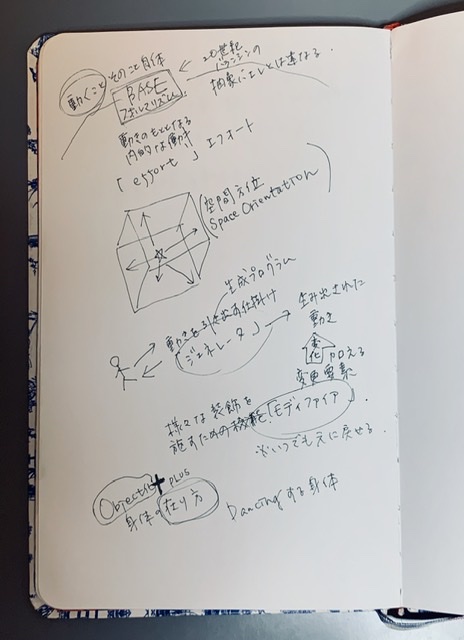 動くこと そのこと自体
BASE
フォルマリズム
20世紀
バランシンの
抽象バエレとは連なる.
動きのもとになる
内的な衝動
「effort」エフォート
(空間方位
Space Orientation)
生成プログラム
動きを引き出す仕掛け
「ジェネレータ」
生み出された
動き
変化
加える
変更要素
様々な装飾を
施すための機能「モディファイア」.
※いつでも元に戻せる.
Objectile + PLUS
身体の在り方
Dancingする身体